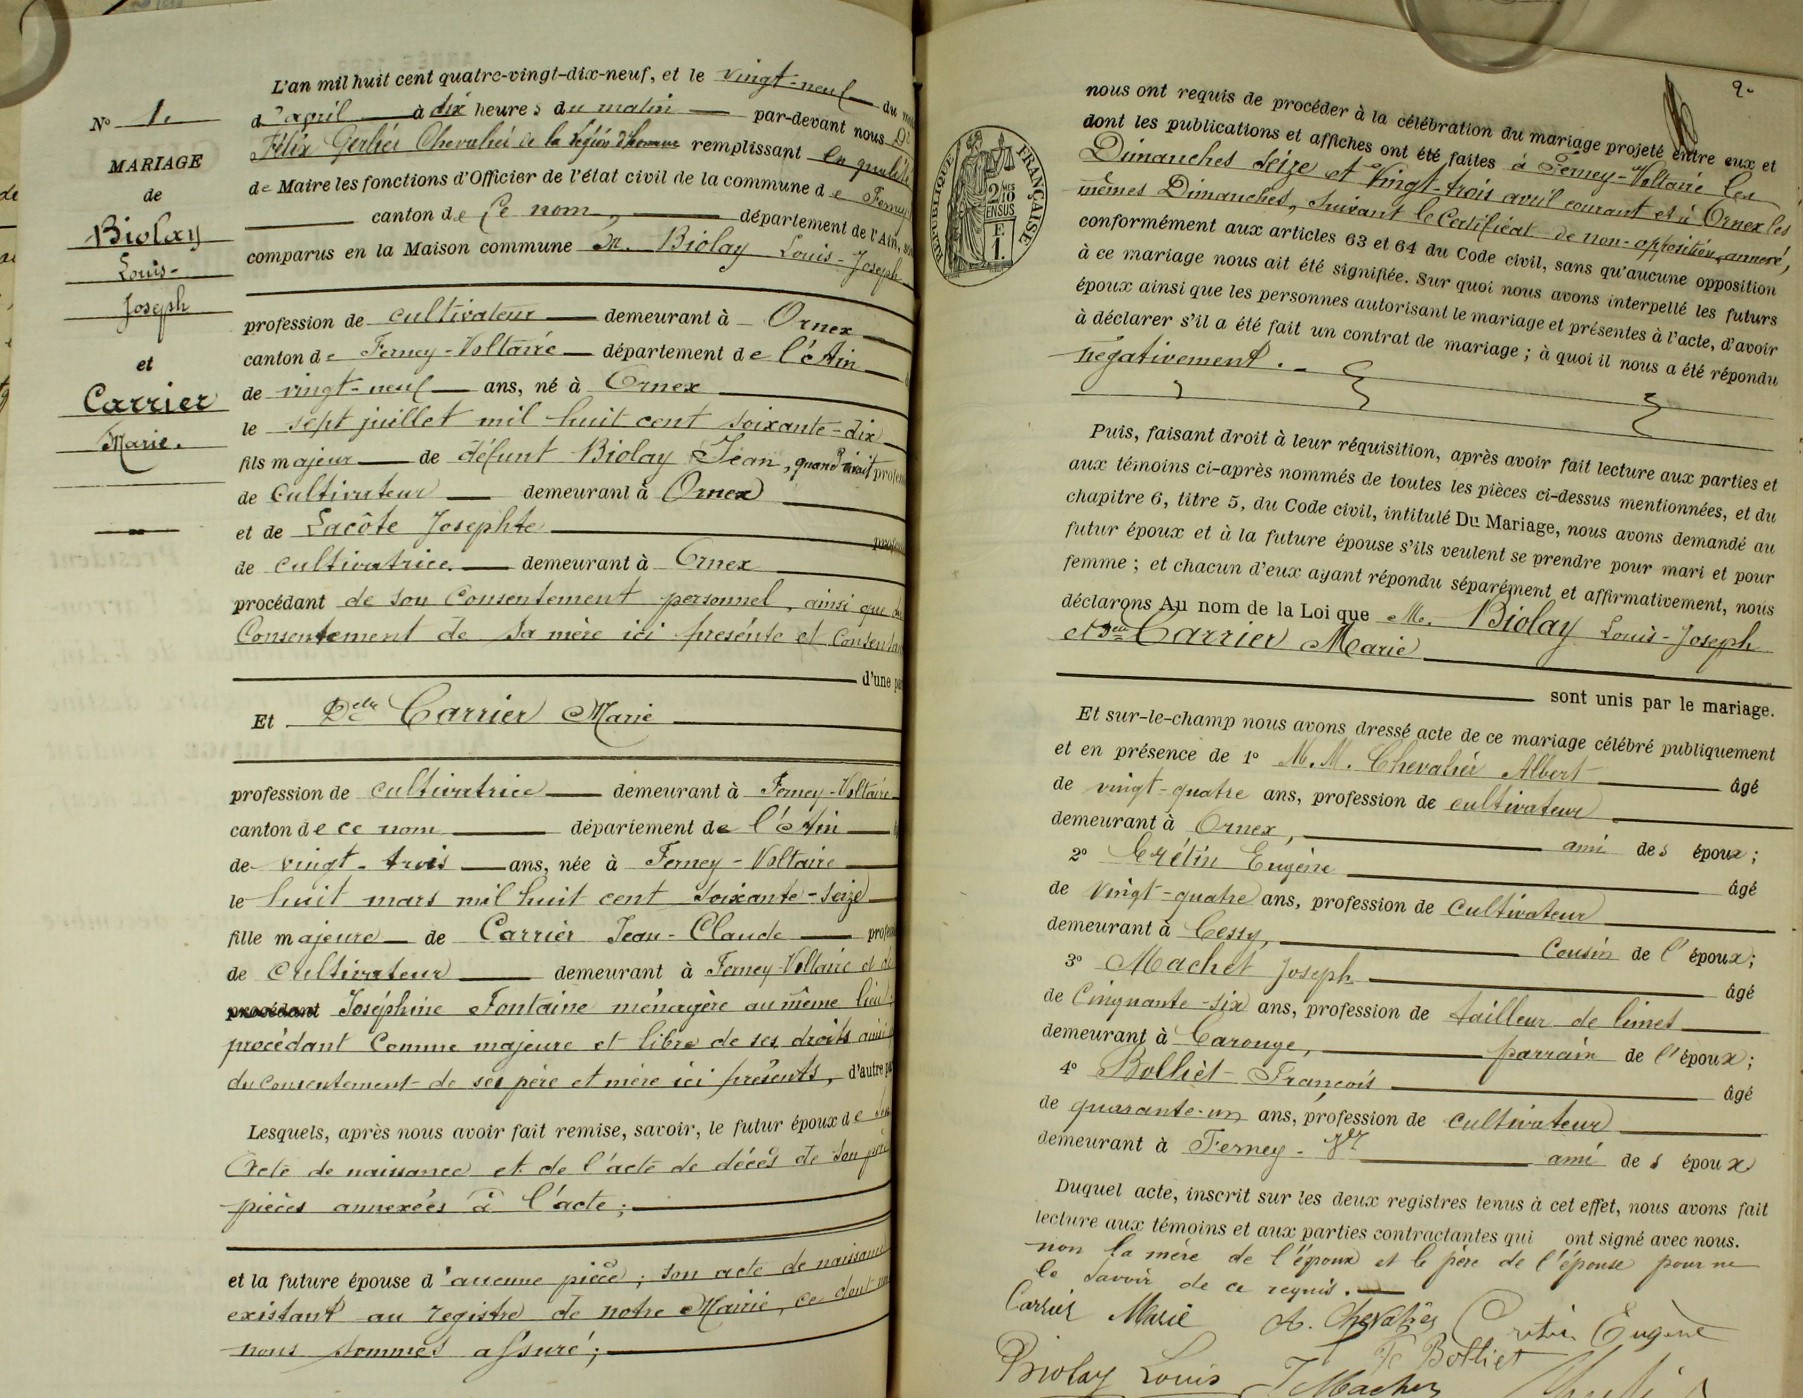 N° 1.
MARIAGE
de
Biolay
Louis-
Joseph
et
Carrier
Marie.
L'an mil huit cent quatre-vingt-dix-neuf, et le vingt-neuf du
d'avril à dix heures du matin par-devant nous
Félix Gerlier Chevalier de la Légion d'honneur remplissant en qualité
de Maire les fonctions d'Officier de l'état civil de la commune de Ferney
canton de Ce nom, département de l'Ain,
comparus en la Maison commune M. Biolay Louis-Joseph
profession de cultivateur demeurant à Ornex
canton de Ferney-Voltaire département de l'Ain
de vingt-neuf ans, né à Ornex
le sept juillet mil huit cent soixante-dix
fils majeur de défunt Biolay Jean, quand vivait
de Cultivateur demeurant à Ornex
et de Lacôte Josephte
de cultivatrice demeurant à Ornex
procédant de son Consentement personnel, ainsi que du
Consentement de sa mère ici présente et
d'une
Et Delle Carrier Marie
profession de cultivatrice demeurant à Ferney-Voltaire
canton de ce nom département de l'Ain
de vingt-trois ans, née à Ferney-Voltaire
le huit mars mil huit cent soixante-seize
fille majeure de Carrier Jean-Claude
de Cultivateur demeurant à Ferney-Voltaire et de
procédant Joséphine Fontaine ménagère au même lieu,
procédant Comme majeure et libre de ses droits ainsi
du consentement de ses père et mère ici présents, d'autre
Lesquels, après nous avoir fait remise, savoir, le futur époux de son
Acte de naissance et de l'acte de décès de son père
pièces annexées à l'acte;
et la future épouse d'aucune pièce; son acte de naissance
existant au registre de notre Mairie, ce dont nous
nous sommes assuré;
2.
nous ont requis de procéder à la célébration du mariage projeté entre eux et
dont les publications et affiches ont été faites à Ferney-Voltaire les
Dimanches seize et vingt-trois avril courant et à Ornex les
mêmes Dimanches, suivant le Certificat de non-opposition annexé,
conformément aux articles 63 et 64 du Code civil, sans qu'aucune opposition
à ce mariage nous ait été signifiée. Sur quoi nous avons interpellé les futurs
époux ainsi que les personnes autorisant le mariage et présentes à l'acte, d'avoir
à déclarer s'il a été fait un contrat de mariage; à quoi il nous a été répondu
négativement.
RÉPUBLIQUE FRANÇAISE
2/10
EN SUS
E
1.
Puis, faisant droit à leur réquisition, après avoir fait lecture aux parties et
aux témoins ci-après nommés de toutes les pièces ci-dessus mentionnées, et du
chapitre 6, titre 5, du Code civil, intitulé Du Mariage, nous avons demandé au
futur époux et à la future épouse s'ils veulent se prendre pour mari et pour
femme; et chacun d'eux ayant répondu séparément et affirmativement, nous
déclarons Au nom de la Loi que M. Biolay Louis-Joseph
et Delle Carrier Marie
sont unis par le mariage.
Et sur-le-champ nous avons dressé acte de ce mariage célébré publiquement
et en présence de 1° M.M. Chevalier Albert âgé
de vingt-quatre ans, profession de cultivateur
demeurant à Ornex, ami des époux;
2° Crétin Eugène âgé
de vingt-quatre ans, profession de Cultivateur
demeurant à Cessy, Cousin de l'époux;
3° Machet Joseph âgé
de Cinquante-six ans, profession de tailleur de limes
demeurant à Carouge, parrain de l'époux;
4° Bolliet François âgé
de quarante-un ans, profession de cultivateur
demeurant à Ferney- ami des époux
Duquel acte, inscrit sur les deux registres tenus à cet effet, nous avons fait
lecture aux témoins et aux parties contractantes qui ont signé avec nous.
non la mère de l'époux et le père de l'épouse pour ne
le savoir de ce requis.
Carrier Marie A. Chevalier Cretin Eugène
Biolay Louis J Machet Fs Bolliet